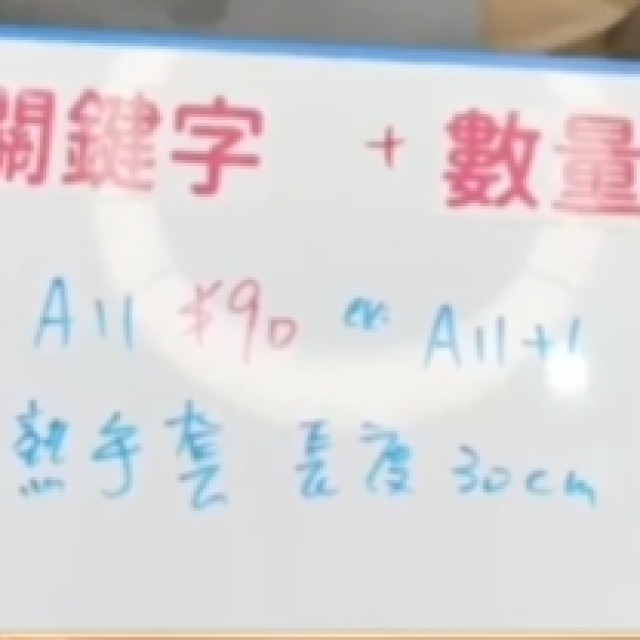 關鍵字 + 數量
A11 $90 ex. A11+1
熱手套 長度 30cm